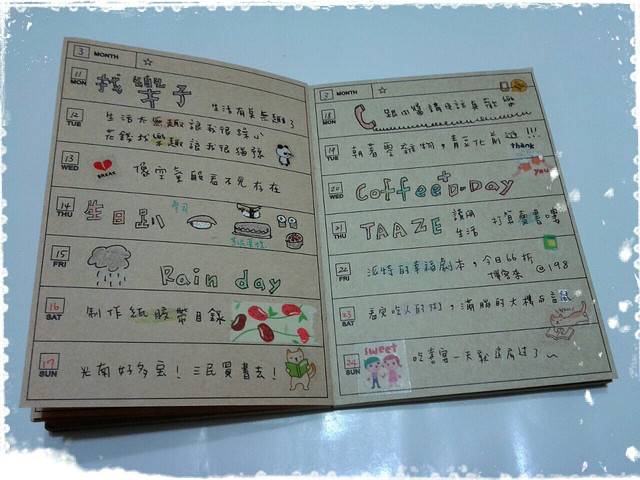 3 MONTH ☆
11 MON 找樂子
生活有夠無趣了
12 TUE 生活太無趣讓我很擔心
花錢找樂趣讓我很
13 WED BREAK 像空氣般看不見存在
14 THU 生日趴
15 FRI Rain day
16 SAT 制作紙膠帶目錄
17 SUN 光南好多宝！三民買書去！
3 MONTH ☆
18 MON 跟小
19 TUE 朝著零雜物，青
!!!
thank
you
20 WED Coffee+D-Day
21 THU TAAZE 讀冊
生活
22 FRI 派特的幸福劇本，今日66折
博客來 @198
23 SAT 看完吃人的樹，滿腦的大樹
24 SUN sweet 吃喜宴一天就這麼過了～